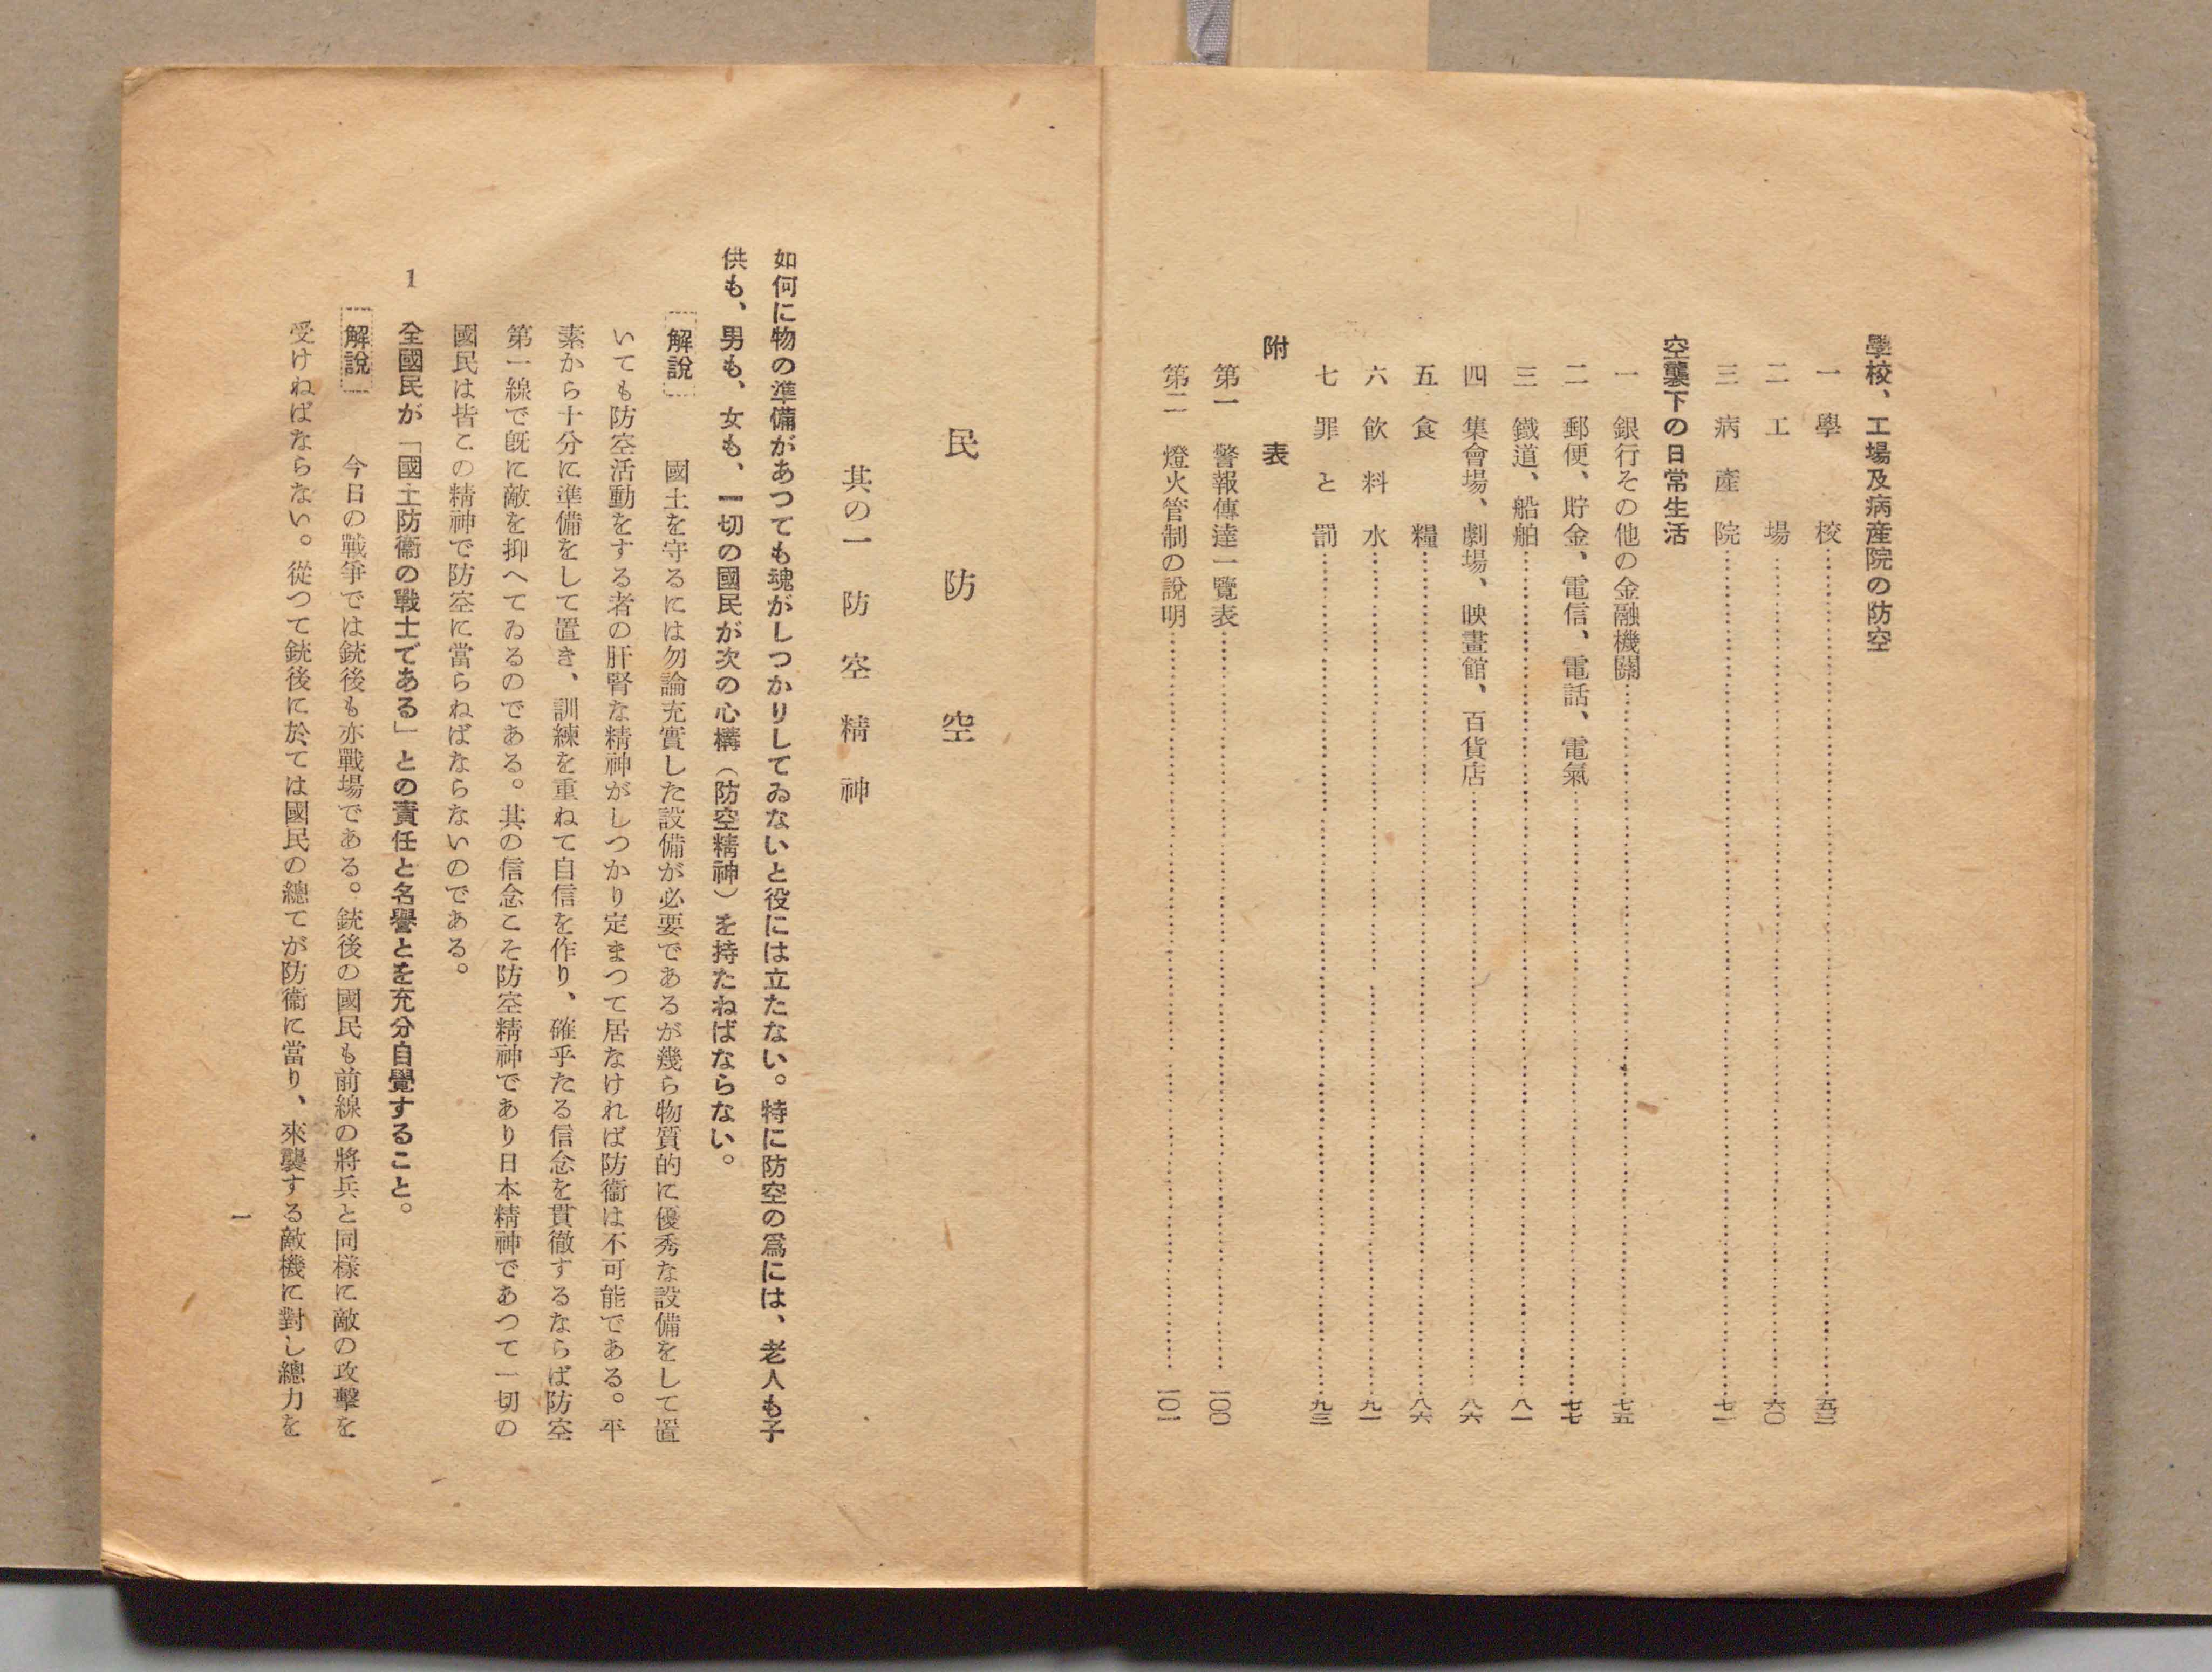 學校、工場及病産院の防空
一 學校……五三
二 工場……六〇
三 病産院……七一
空襲下の日常生活
一 銀行その他の金融機關……七五
二 郵便、貯金、電信、電話、電氣……七七
三 鐵道、船舶……八一
四 集會場、劇場、映畫館、百貨店……八六
五 食糧……八六
六 飮料水……九一
七 罪と罰……九三
附表
第一 警報傳達一覽表……一〇〇
第二 燈火管制の說明……一〇一
民防空
其の一 防空精神
如何に物の準備があつても魂がしつかりしてゐないと役には立たない。特に防空の爲には、老人も子
供も、男も、女も、一切の國民が次の心構（防空精神）を持たねばならない。
解說 國土を守るには勿論充實した設備が必要であるが幾ら物質的に優秀な設備をして置
いても防空活動をする者の肝腎な精神がしつかり定まつて居なければ防衞は不可能である。平
素から十分に準備をして置き、訓練を重ねて自信を作り、確乎たる信念を貫徹するならば防空
第一線で旣に敵を抑へてゐるのである。其の信念こそ防空精神であり日本精神であつて一切の
國民は皆この精神で防空に當らねばならないのである。
1 全國民が「國土防衞の戰士である」との責任と名譽とを充分自覺すること。
解說 今日の戰爭では銃後も亦戰場である。銃後の國民も前線の將兵と同樣に敵の攻擊を
受けねばならない。從つて銃後に於ては國民の總てが防衞に當り、來襲する敵機に對し總力を
一